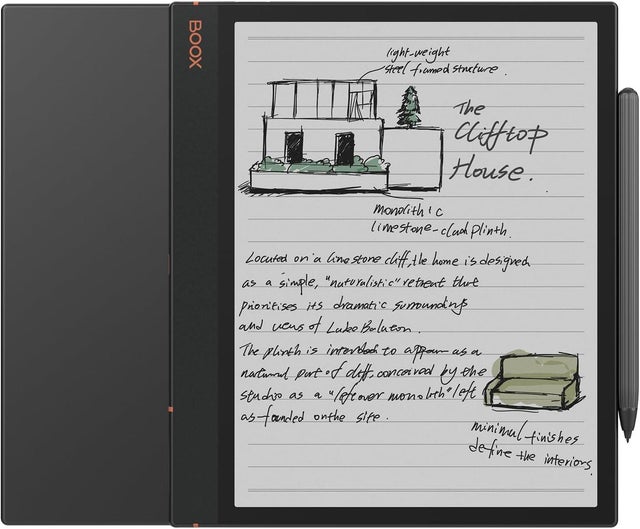 BOOX
light-weight
steel framed structure.
The
Clifftop
House.
monolithic
limestone-clad plinth.
Located on a limestone cliff, the home is designed
as a simple, "naturalistic" retreat that
prioritises its dramatic surroundings
and views of Lake Balaton.
The plinth is intended to appear as a
natural part of cliff, conceived by the
studio as a "leftover monolith" left
as-founded on the site.
minimal finishes
define the interiors.